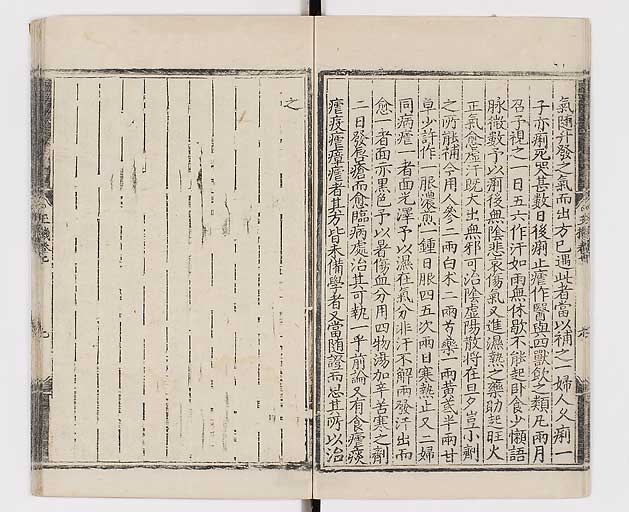 氣随汗發之氣而出方已遇此者當以補之一婦人久痢一
子亦痢死哭甚數日後痢止瘧作醫與四獸飲之類凢兩月
召予視之一日五六作汗如雨無休歇不能起卧食少懶語
脉微數予以痢後無陰悲哀傷氣又進濕熱之藥助起旺火
正氣愈虚汗既大出無邪可治陰虚陽散將在旦夕豈小劑
之所能補令用人參二兩白术二兩芍藥一兩黄芪半兩甘
草少許作一服濃煎一鍾日服四五次兩日寒熱止又二婦
同病瘧一者面光澤予以濕在氣分非汗不解兩發汗出而
愈一者面亦黒色予以暑傷血分用四物湯加辛苦寒之劑
二日發唇瘡而愈臨病處治其可執一乎前論又有食瘧痰
瘧疫瘧瘴瘧者其方皆未備學者又當随證而忌其所以治
之